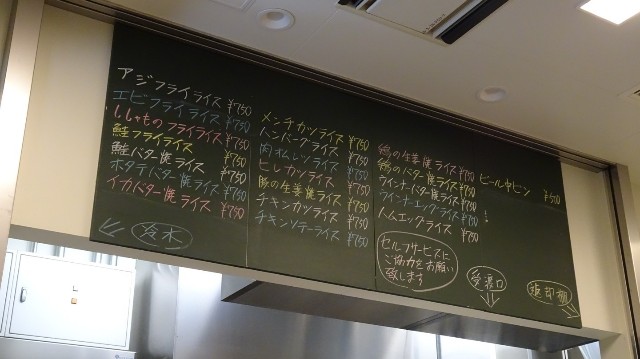 アジフライライス ¥750
エビフライライス ¥750
ししゃものフライライス ¥750
鮭フライライス ¥750
鮭バター焼ライス ¥750
ホタテバター焼ライス ¥750
イカバター焼ライス ¥750
冷水
メンチカツライス ¥750
ハンバーグライス ¥750
肉オムレツライス ¥750
ヒレカツライス ¥750
豚の生姜焼ライス ¥750
チキンカツライス ¥750
チキンソテーライス ¥750
鶏の生姜焼ライス ¥750
鶏のバター焼ライス ¥750
ウインナーバター焼ライス ¥750
ウインナーエッグライス ¥750
ハムエッグライス ¥750
セルフサービスに
ご協力をお願い
致します
ビール中ビン ¥500
受渡口
返却棚